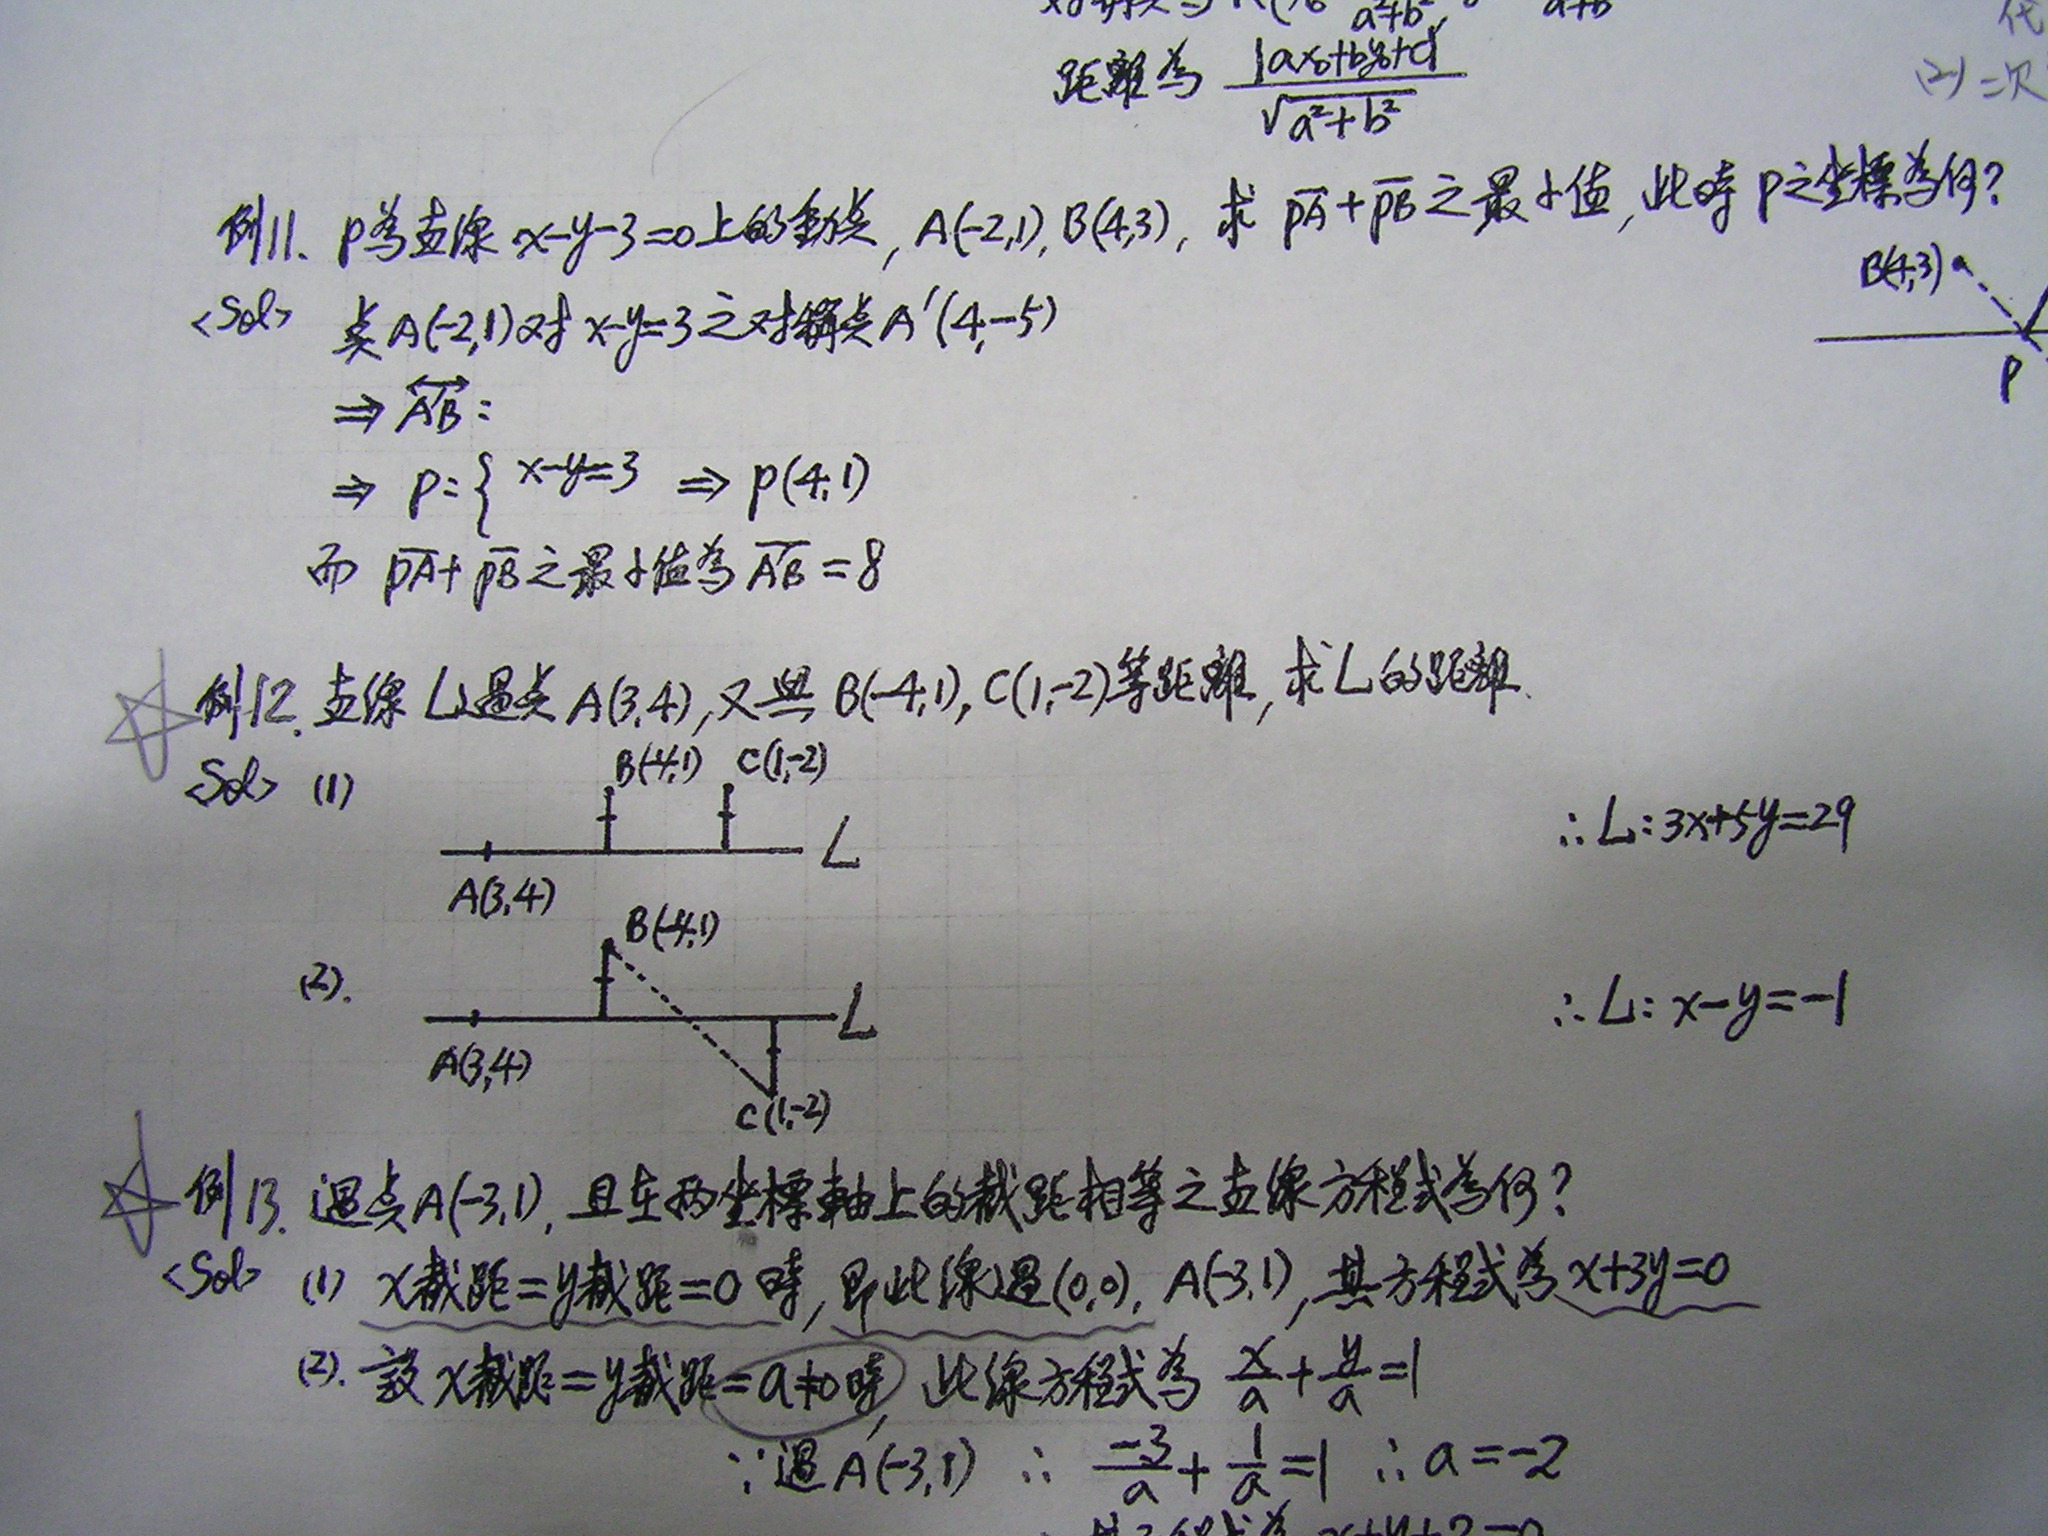 a²+b², a²+b²
代
距離為 |ax₀+by₀+c| / √a²+b²
(2) 二次
例11. P為直線 x-y-3=0上的動点, A(-2,1), B(4,3), 求 PA+PB 之最小值, 此時 P之坐標為何?
B(4,3)
P
<Sol> 点A(-2,1)对 x-y=3之对稱点A'(4,-5)
⇒ A'B:
⇒ P:{ x-y=3 ⇒ P(4,1)
而 PA+PB之最小值為 A'B = 8
例12. 直線 L過点 A(3,4), 又與 B(-4,1), C(1,-2)等距離, 求L的距離.
<Sol> (1)
B(-4,1) C(1,-2)
L
A(3,4)
∴ L: 3x+5y=29
(2).
B(-4,1)
L
A(3,4)
C(1,-2)
∴ L: x-y=-1
例13. 過点A(-3,1), 且在两坐標軸上的截距相等之直線方程式為何?
<Sol> (1) x截距=y截距=0 時, 即此線過(0,0), A(-3,1), 其方程式為 x+3y=0
(2). 設 x截距=y截距=a≠0時, 此線方程式為 x/a + y/a =1
∵過A(-3,1) ∴ -3/a + 1/a =1 ∴ a=-2
其方程式為 x+y+2=0